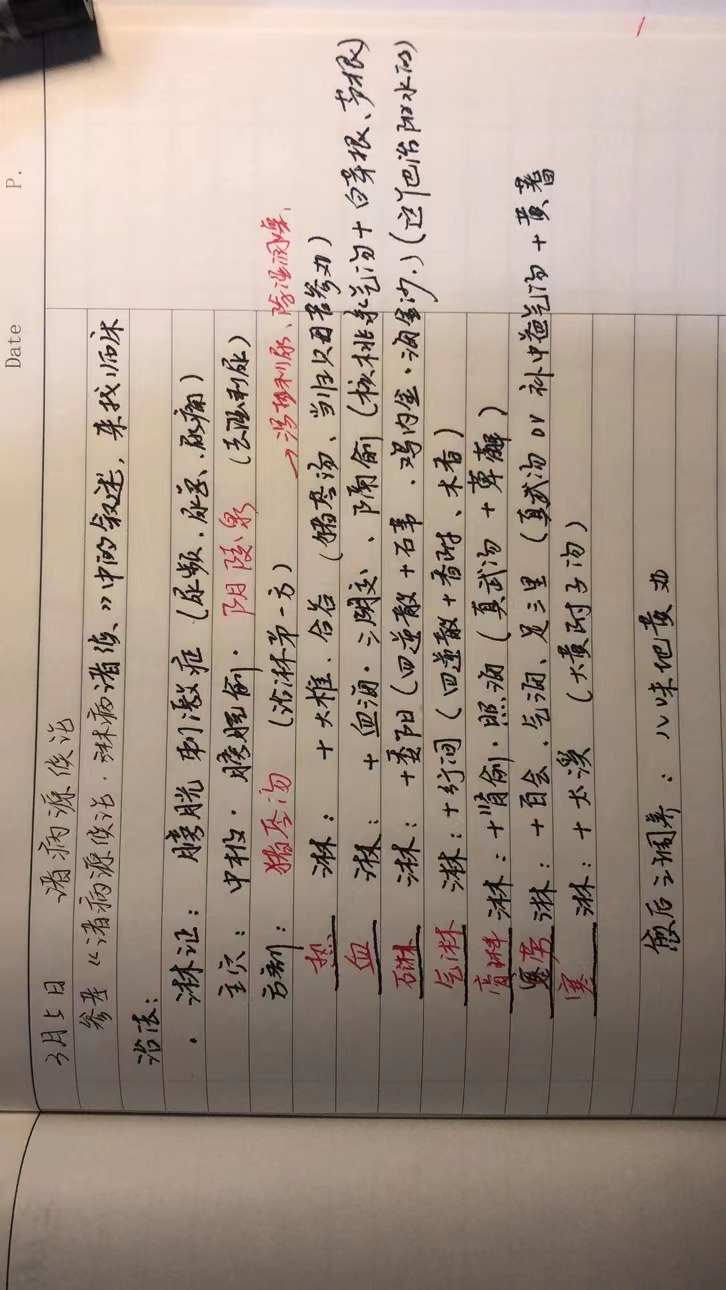 Date P.
3月5日 诸病源候论
参考《诸病源候论·淋病诸候》中的叙述,来找临床
治法:
·淋证:膀胱刺激症(尿频、尿急、尿痛)
主穴:中极·膀胱俞·阴陵泉(去湿利尿)
方剂:猪苓汤(治淋第一方)→清热利尿、除湿润燥.
热淋:+大椎、合谷(猪苓汤、当归贝母苦参丸)
血淋:+血海·三阴交、隔俞(核桃承气汤+白茅根、芦根)
石淋淋:+委阳(四逆散+石韦、鸡内金·海金沙.)(这丫也治阳水的)
气淋淋:+行间(四逆散+香附、木香)
膏淋淋:+肾俞·照海(真武汤+萆薢)
劳淋:+百会·气海、足三里(真武汤 or 补中益气汤+黄蓍
寒淋:+太溪(大黄附子汤)
愈后之调养:八味地黄丸